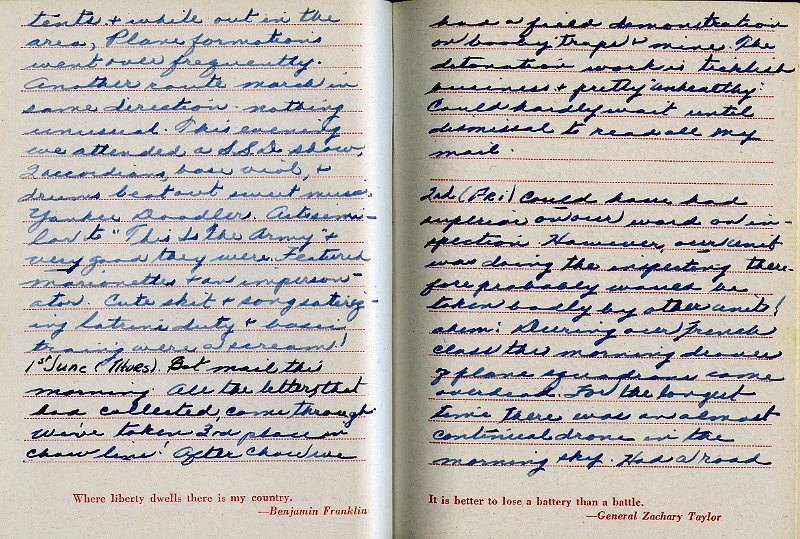 tents & while out in the
area, Plane formations
went over frequently.
Another route march in
same direction. nothing
unusual. This evening
we attended a S.S.D. show,
2 accordians, base viol, &
drums beat out sweet music.
Yankee Doodler. Acts simi-
lar to "This Is The Army" &
very good they were. Featured
marionettes & an imperson-
ator. Cute skit & song satiriz-
ing latrine duty & basic
training were a scream!
1st June (Thurs). Got mail this
morning. All the letters that
had collected, came through.
We've taken 3rd place in
chow line! After chow we
Where liberty dwells there is my country.
—Benjamin Franklin
had a field demonstration
on booby traps & mine. The
detonation work is ticklish
business & pretty "unhealthy".
Could hardly wait until
dismissal to read all my
mail.
2nd (Fri) Could have had
superior on our ward on in-
spection. However, our unit
was doing the inspecting there-
fore probably would be
taken badly by other units!
ahem! During our French
class this morning droves
of plane squadrons came
overhead. For the longest
time there was an almost
continual drone in the
morning sky. Had a road
It is better to lose a battery than a battle.
—General Zachary Taylor